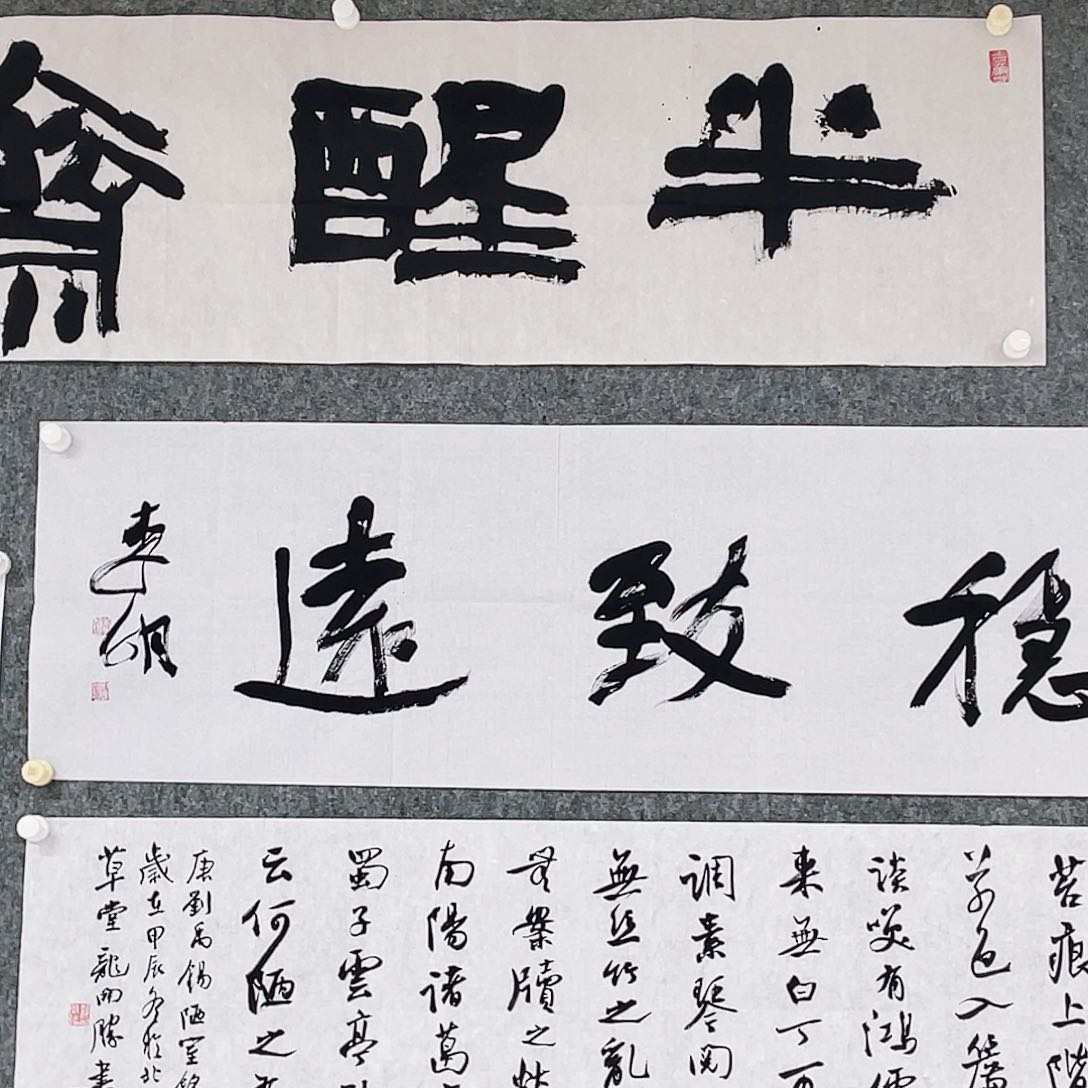 半醒齋
稳致遠
苔痕上階
草色入簾
談笑有鴻儒
来無白丁可
調素琴閱
無丝竹之亂
無案牘之
南陽諸葛
蜀子雲亭
云何陋之有
唐劉禹錫陋室銘
歲在甲辰冬於北
草堂龍雨勝書